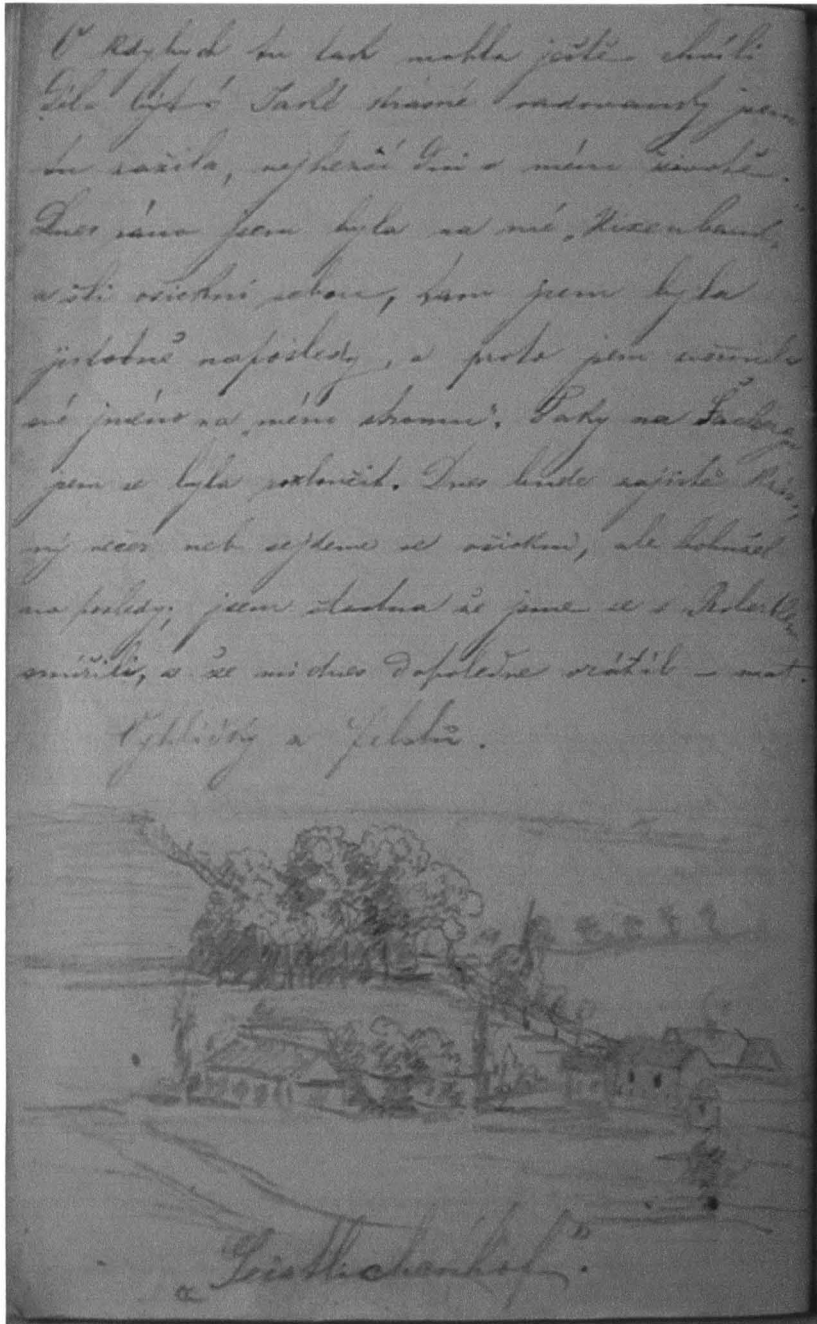 Ó kdybych tu tak mohla ještě chvíli
déle býti! Také krásné radovánky jsem
tu zažila, nejhezčí dni v mém životě.
Dnes ráno jsem byla na mé „Nixenbank“
a šli všickni sebou, tam jsem byla
jistotně naposledy, a proto jsem
své jméno na „mém stromu“. Taky na
jsem se byla rozloučit. Dnes bude zajisté
ný večer neb sejdeme se všickni, ale bohužel
na posledy; jsem šťastna že jsme se s
smířili, a že mi dnes dopoledne vrátil – mat.
Vyhlídky z
„Geistlichenhof“.